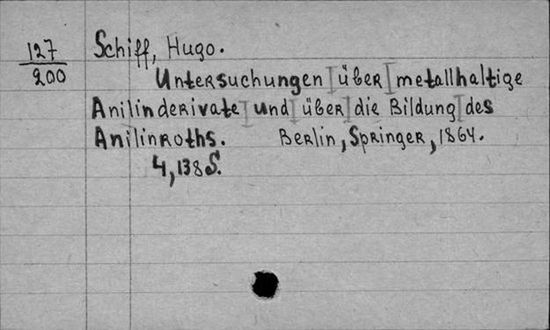 127
200
Schiff, Hugo.
Untersuchungen über metallhaltige
Anilinderivate und über die Bildung des
Anilinroths. Berlin, Springer, 1864.
4, 138 S.